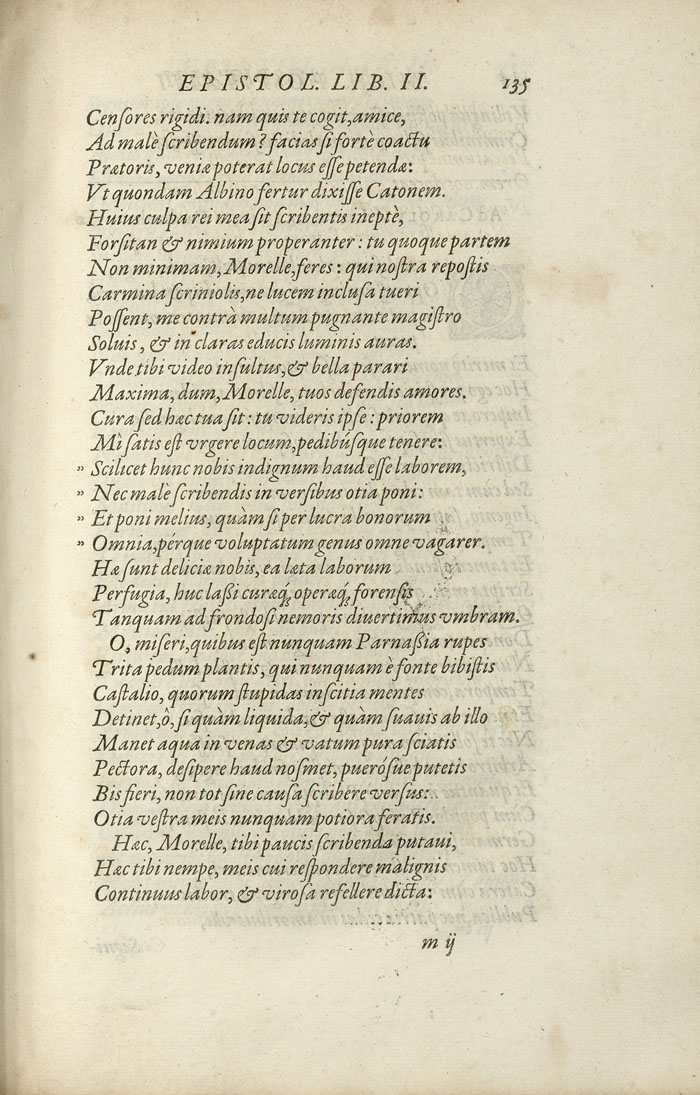 EPISTOL. LIB. II. 135
Cenſores rigidi. nam quis te cogit, amice,
Ad malè ſcribendum? facias ſi fortè coactu
Prætoris, veniæ poterat locus eſſe petendæ:
Vt quondam Albino fertur dixiſſe Catonem.
Huius culpa rei mea ſit ſcribentis ineptè,
Forſitan & nimium properanter: tu quoque partem
Non minimam, Morelle, feres: qui noſtra repoſtis
Carmina ſcriniolis, ne lucem incluſa tueri
Poſſent, me contrà multum pugnante magiſtro
Soluis, & in claras educis luminis auras.
Vnde tibi video inſultus, & bella parari
Maxima, dum, Morelle, tuos defendis amores.
Cura ſed hæc tua ſit: tu videris ipſe: priorem
Mî ſatis eſt vrgere locum, pedibúſque tenere:
„ Scilicet hunc nobis indignum haud eſſe laborem,
„ Nec malè ſcribendis in verſibus otia poni:
„ Et poni melius, quàm ſi per lucra bonorum
„ Omnia, pérque voluptatum genus omne vagarer.
Hæ ſunt deliciæ nobis, ea læta laborum
Perfugia, huc laſſi curæq́; operæq́; forenſis
Tanquam ad frondoſi nemoris diuertimus vmbram.
O, miſeri, quibus eſt nunquam Parnaſſia rupes
Trita pedum plantis, qui nunquam è fonte bibiſtis
Caſtalio, quorum ſtupidas inſcitia mentes
Detinet, ô, ſi quàm liquida, & quàm ſuauis ab illo
Manet aqua in venas & vatum pura ſciatis
Pectora, deſipere haud noſmet, pueróſue putetis
Bis fieri, non tot ſine cauſa ſcribere verſus:
Otia veſtra meis nunquam potiora feratis.
Hæc, Morelle, tibi paucis ſcribenda putaui,
Hæc tibi nempe, meis cui reſpondere malignis
Continuus labor, & viroſa refellere dicta:
m ij